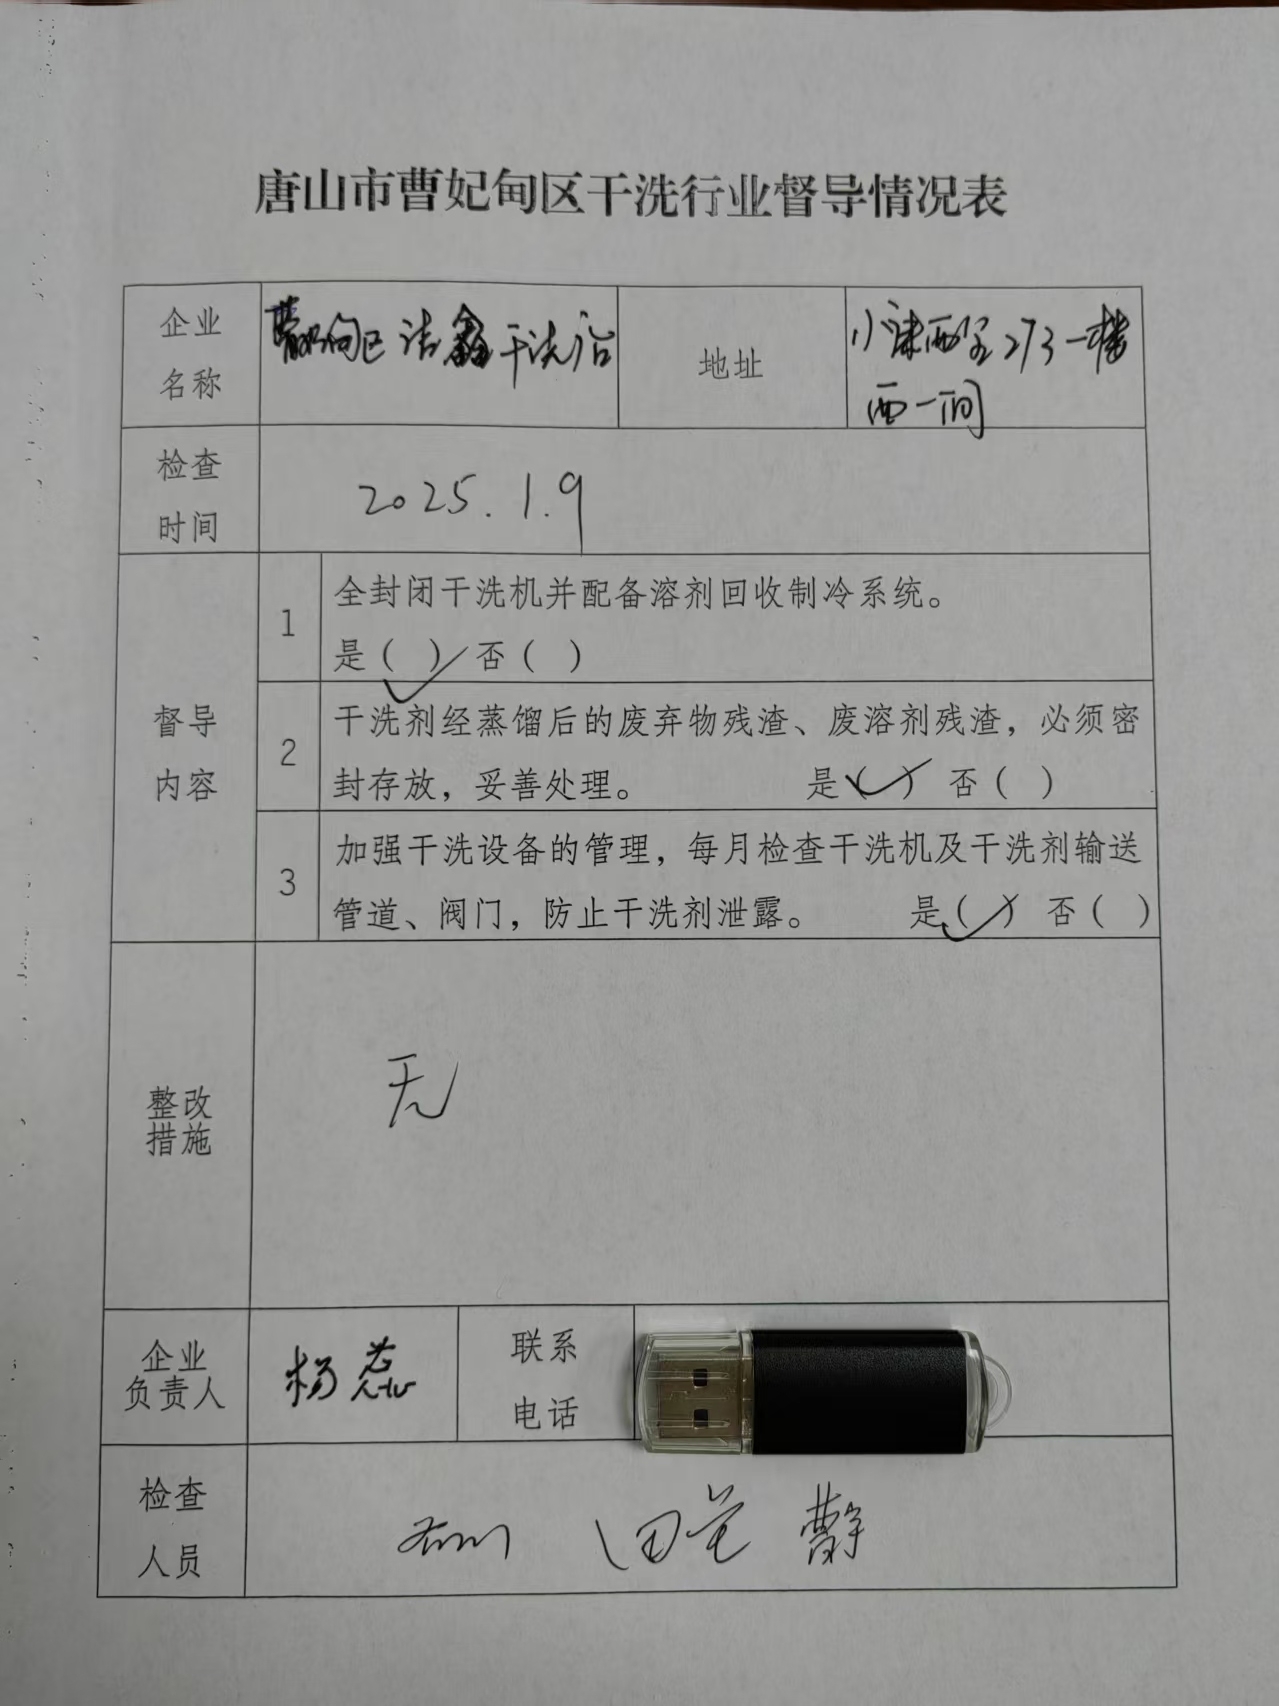 唐山市曹妃甸区干洗行业督导情况表
企业
名称
曹妃甸区洁鑫干洗店
地址
273一楼
西一间
检查
时间
2025.1.9
督导
内容
1
全封闭干洗机并配备溶剂回收制冷系统。
是(✓) 否( )
2
干洗剂经蒸馏后的废弃物残渣、废溶剂残渣，必须密
封存放，妥善处理。 是(✓) 否( )
3
加强干洗设备的管理，每月检查干洗机及干洗剂输送
管道、阀门，防止干洗剂泄露。 是(✓) 否( )
整改
措施
无
企业
负责人
杨蕊
联系
电话
检查
人员
曹静